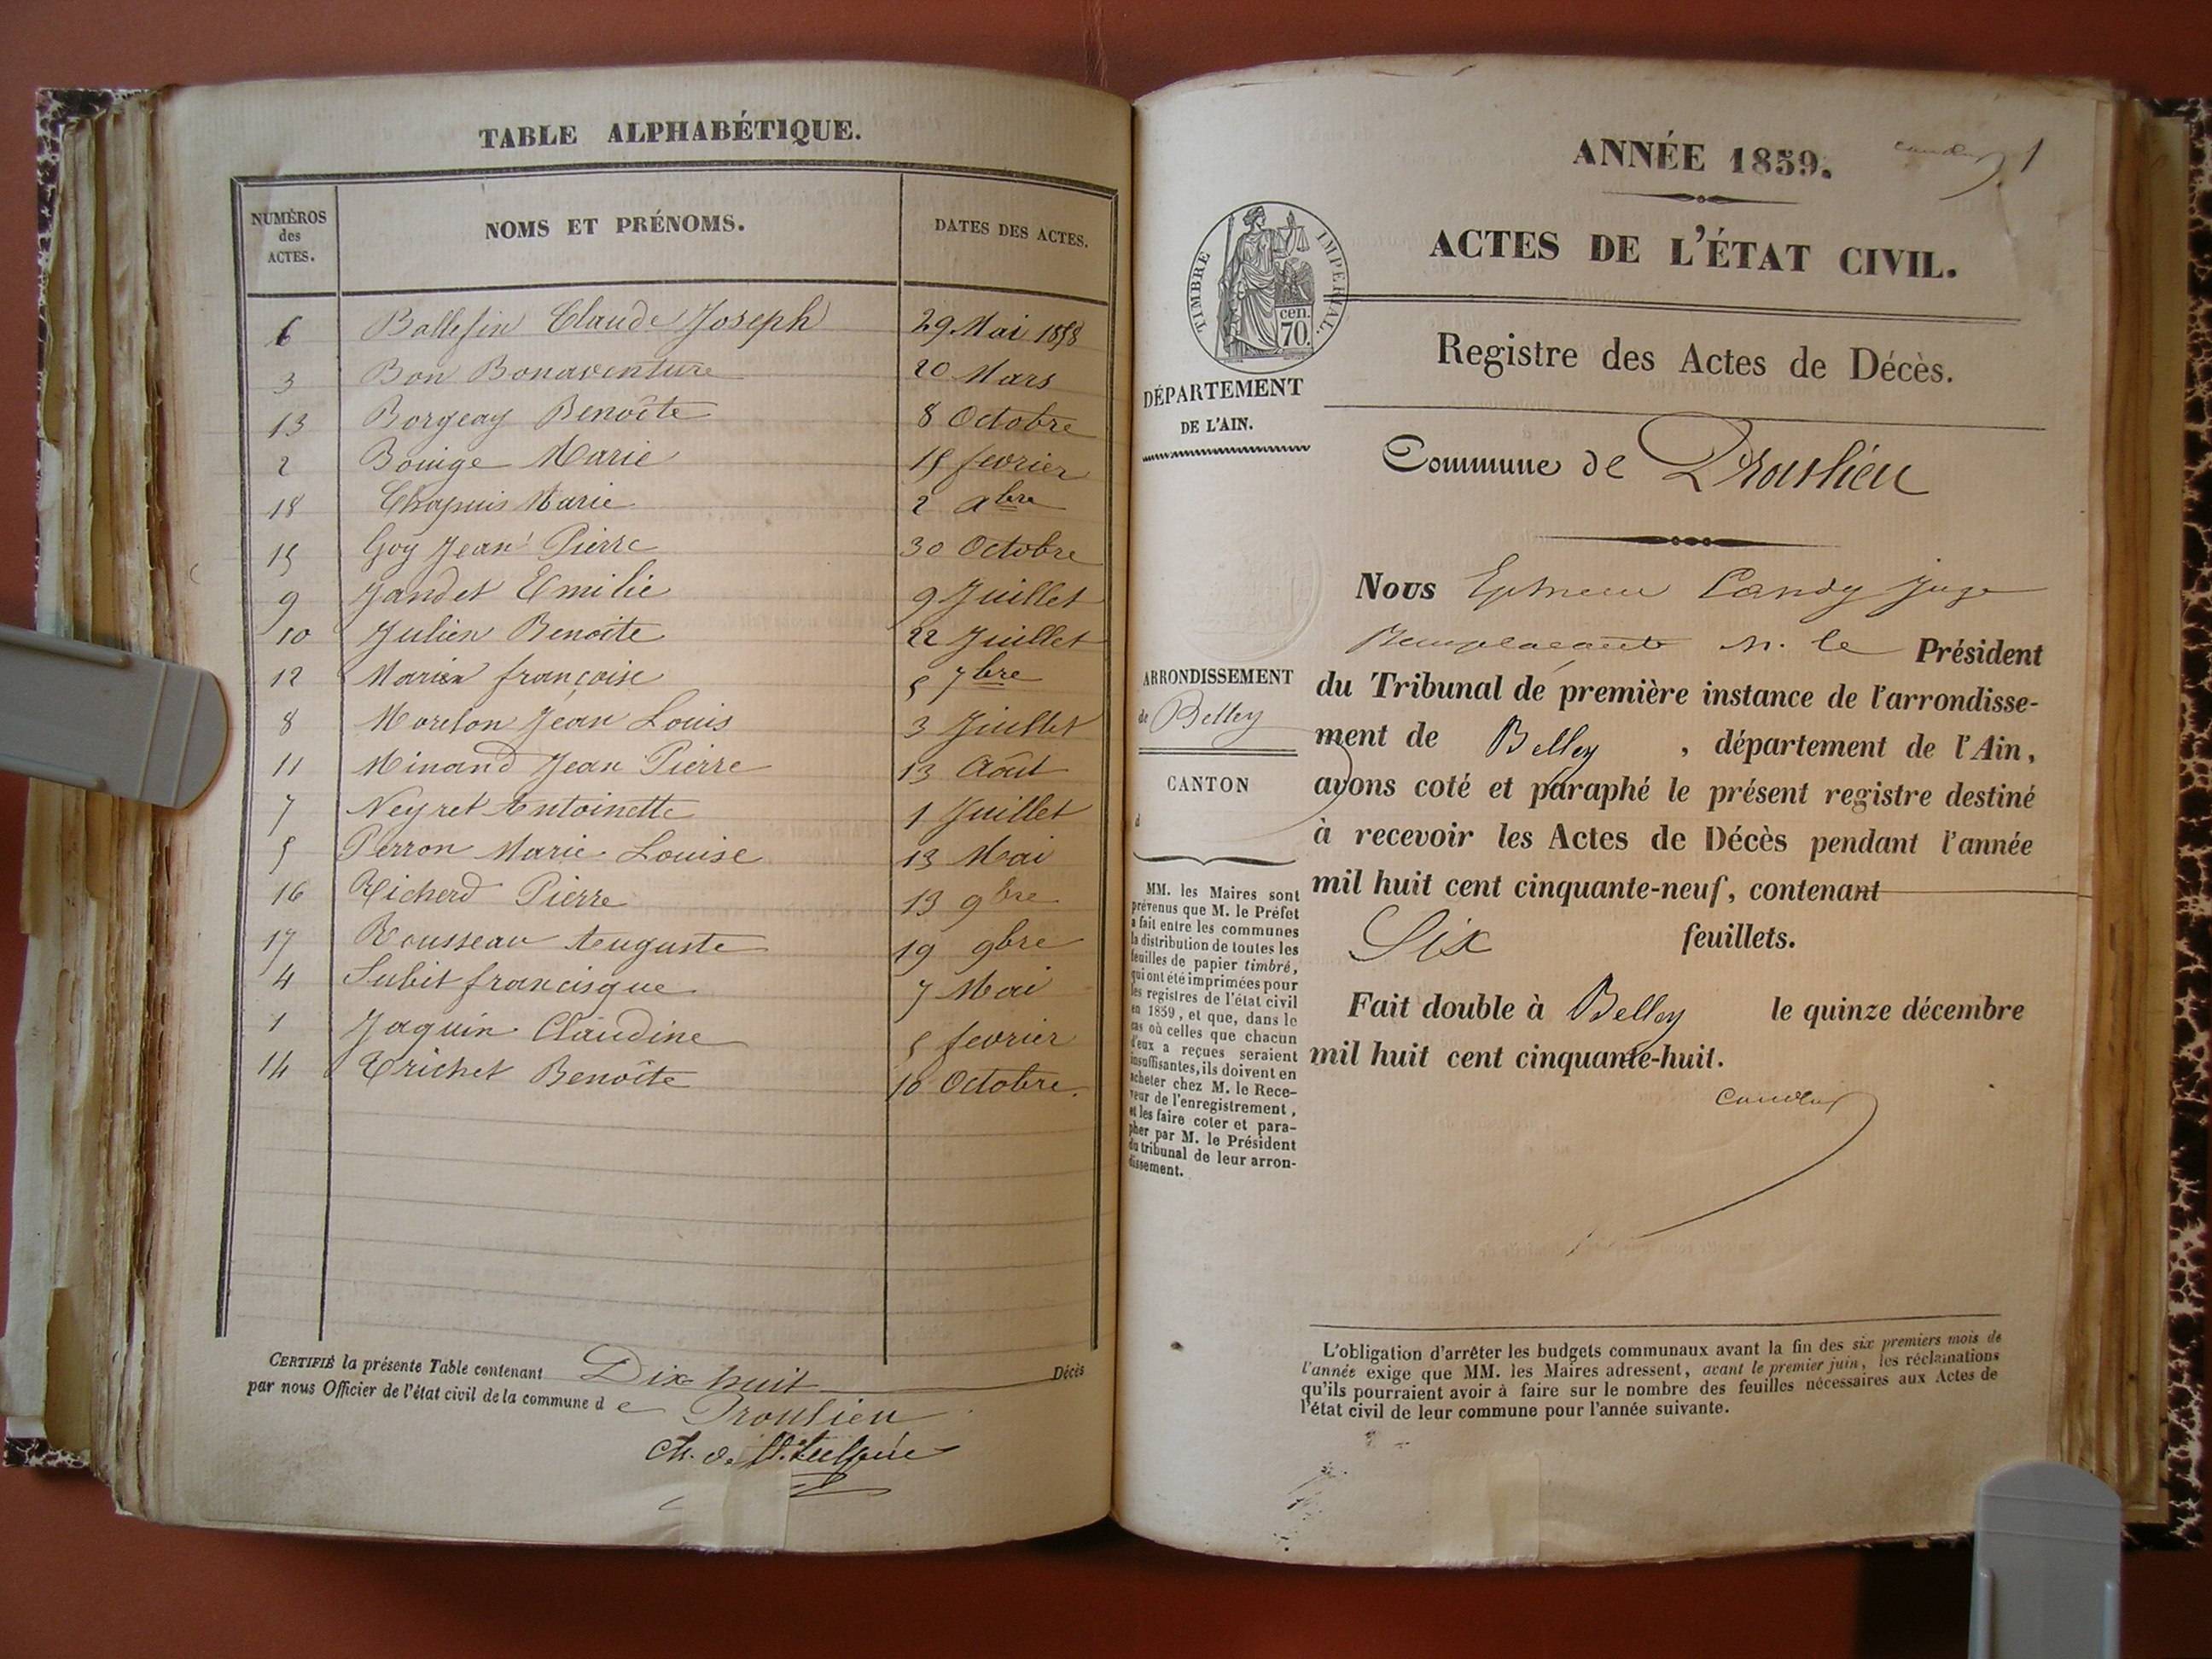 TABLE ALPHABÉTIQUE.
NUMÉROS des ACTES. NOMS ET PRÉNOMS. DATES DES ACTES.
6 Ballefin Claude Joseph 29 Mai 1858
3 Bon Bonaventure 20 Mars
13 Borgeay Benoîte 8 Octobre
2 Bouige Marie 15 fevrier
18 Chapuis Marie 2 Xbre
15 Goy Jean Pierre 30 Octobre
9 Jandet Emilie 9 Juillet
10 Julien Benoite 22 Juillet
12 Marin françoise 5 7bre
8 Morelon Jean Louis 3 Juillet
11 Minand Jean Pierre 13 Août
7 Neyret Antoinette 1 Juillet
5 Perron Marie Louise 13 Mai
16 Richerd Pierre 13 9bre
17 Rousseau Auguste 19 9bre
4 Subit francisque 7 Mai
1 Jaquin Claudine 5 fevrier
14 Trichet Benoîte 10 Octobre.
CERTIFIÉ la présente Table contenant Dix huit Décès
par nous Officier de l'état civil de la commune d e Proulieu
ANNÉE 1859.
1
ACTES DE L'ÉTAT CIVIL.
TIMBRE IMPERIAL.
cen.
70.
Registre des Actes de Décès.
DÉPARTEMENT
DE L'AIN.
Commune de Proulieu
Nous Candy Juge
Remplacant M. le Président
du Tribunal de première instance de l'arrondisse-
ment de Belley , département de l'Ain,
avons coté et paraphé le présent registre destiné
à recevoir les Actes de Décès pendant l'année
mil huit cent cinquante-neuf, contenant
Six feuillets.
Fait double à Belley le quinze décembre
mil huit cent cinquante-huit.
ARRONDISSEMENT
de Belley
CANTON
d
MM. les Maires sont
prévenus que M. le Préfet
a fait entre les communes
la distribution de toutes les
feuilles de papier timbré,
qui ont été imprimées pour
les registres de l'état civil
en 1859, et que, dans le
cas où celles que chacun
d'eux a reçues seraient
insuffisantes, ils doivent en
acheter chez M. le Rece-
veur de l'enregistrement,
et les faire coter et para-
pher par M. le Président
du tribunal de leur arron-
dissement.
L'obligation d'arrêter les budgets communaux avant la fin des six premiers mois de
l'année exige que MM. les Maires adressent, avant le premier juin, les réclamations
qu'ils pourraient avoir à faire sur le nombre des feuilles nécessaires aux Actes de
l'état civil de leur commune pour l'année suivante.